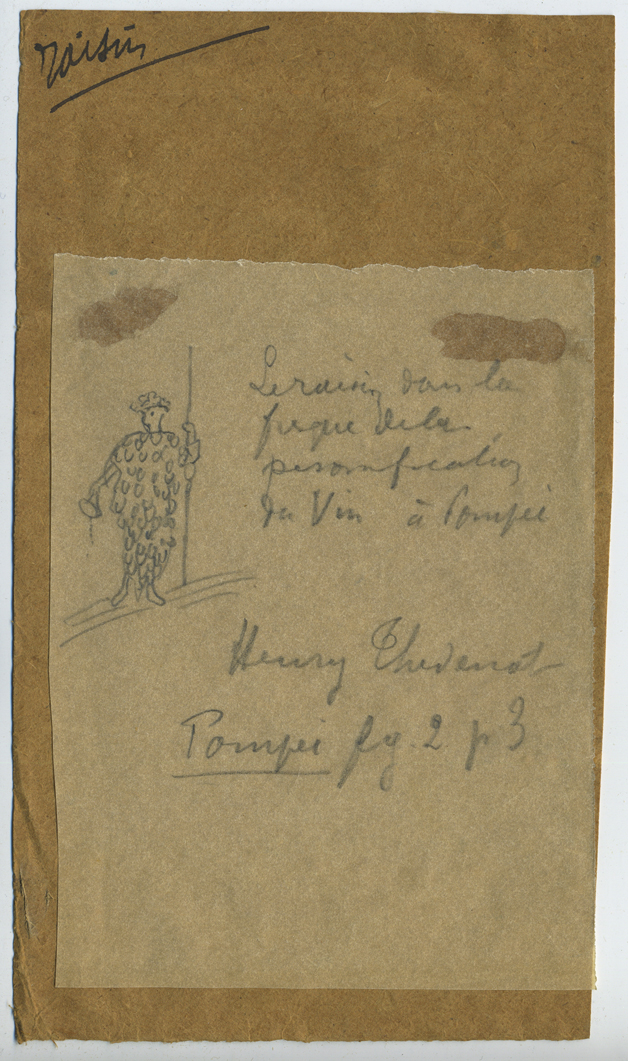 Raisin
Le raisin dans la
figure de la
personnification
du Vin à Pompei
Henry Thedenat
Pompei fig. 2 p 3